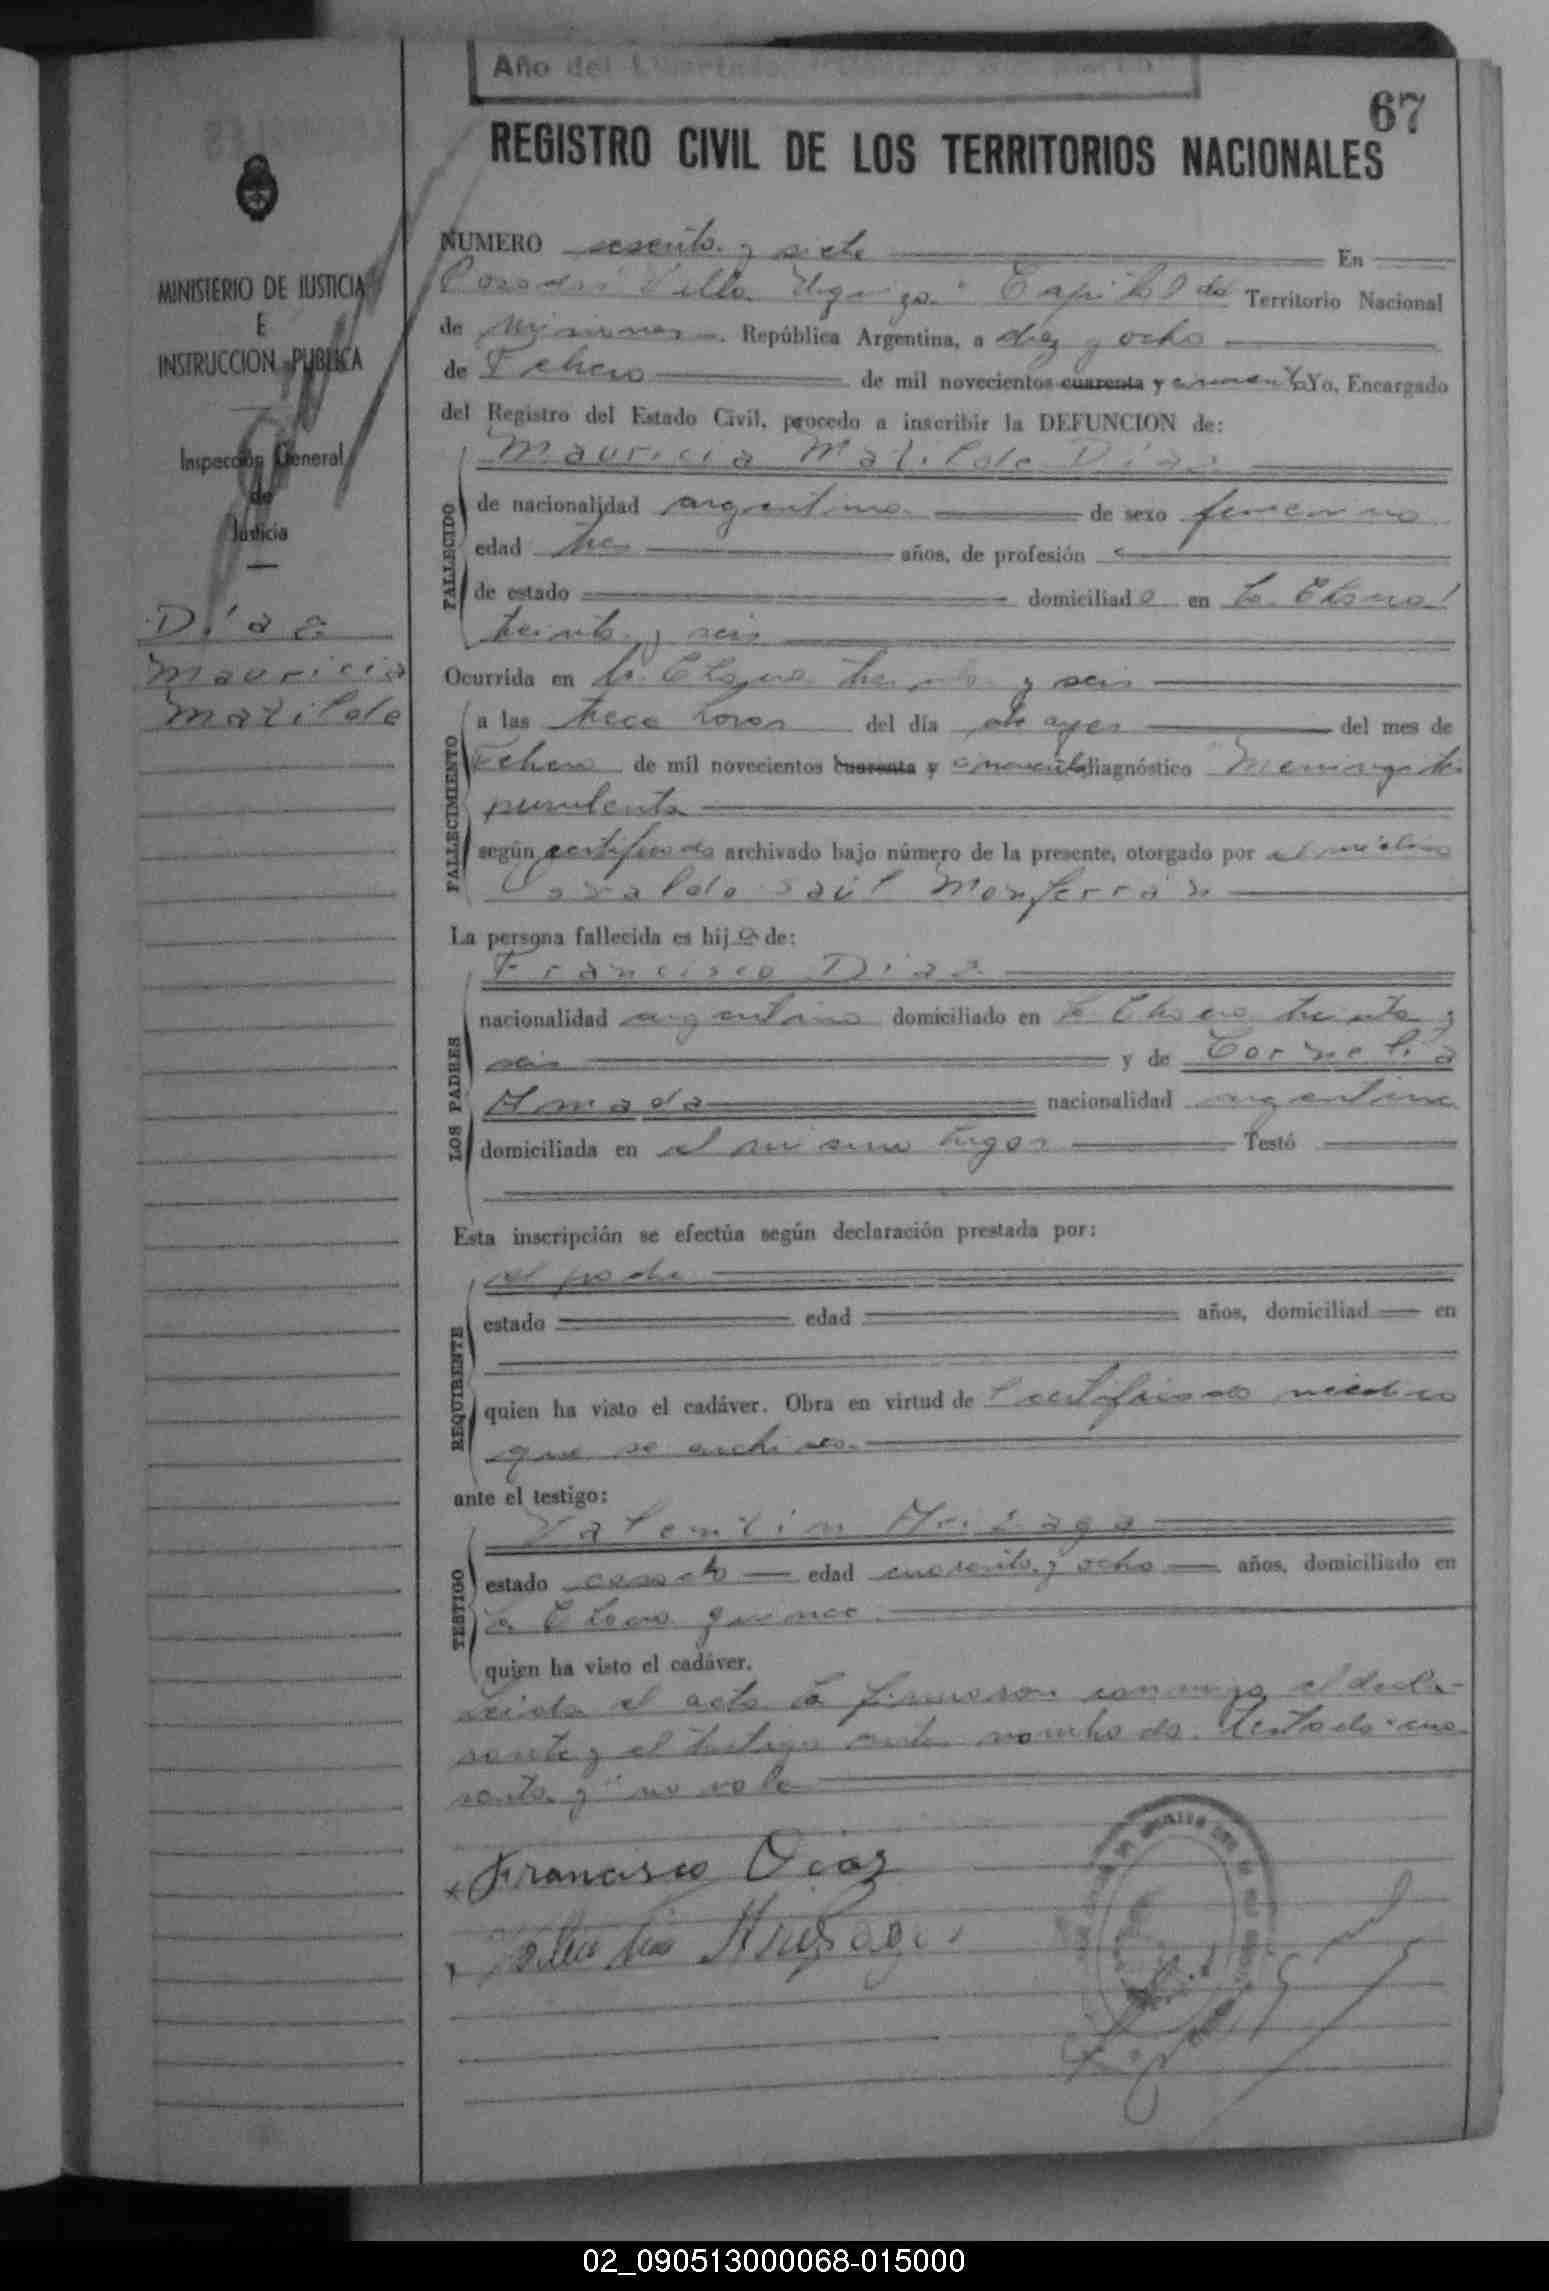 Año del Libertador "General San Martin"
67
REGISTRO CIVIL DE LOS TERRITORIOS NACIONALES
MINISTERIO DE JUSTICIA
E
INSTRUCCION PUBLICA
Inspección General
de
Justicia
Díaz
Mauricia
Matilde
NUMERO sesenta y siete En
Posadas "Villa Urquiza" Capital del Territorio Nacional
de Misiones República Argentina, a diez y ocho
de Febrero de mil novecientos cuarenta y cincuenta Yo, Encargado
del Registro del Estado Civil, procedo a inscribir la DEFUNCION de:
Mauricia Matilde Díaz
FALLECIDO
de nacionalidad argentina de sexo femenino
edad tres años, de profesión
de estado domiciliada en La Chacra
treinta y seis
Ocurrida en la Chacra treinta y seis
FALLECIMIENTO
a las trece horas del día de ayer del mes de
Febrero de mil novecientos cuarenta y cincuenta diagnóstico Meningitis
purulenta
según certificado archivado bajo número de la presente, otorgado por el médico
Osvaldo Saúl Monferrán
La persona fallecida es hija de:
LOS PADRES
Francisco Díaz
nacionalidad argentino domiciliado en la Chacra treinta y
seis y de Cornelia
Amada nacionalidad argentina
domiciliada en el mismo lugar Testó
Esta inscripción se efectúa según declaración prestada por:
REQUIRENTE
el padre
estado edad años, domiciliad en
quien ha visto el cadáver. Obra en virtud de certificado médico
que se archiva.
ante el testigo:
TESTIGO
Valentin Arizaga
estado casado edad cuarenta y ocho años, domiciliado en
la Chacra quince
quien ha visto el cadáver.
Leida el acta la firmaron conmigo el decla-
rante y el testigo antes nombrado. Testado "cua
renta y" no vale
Francisco Diaz
Valentin Arizaga
02_090513000068-015000